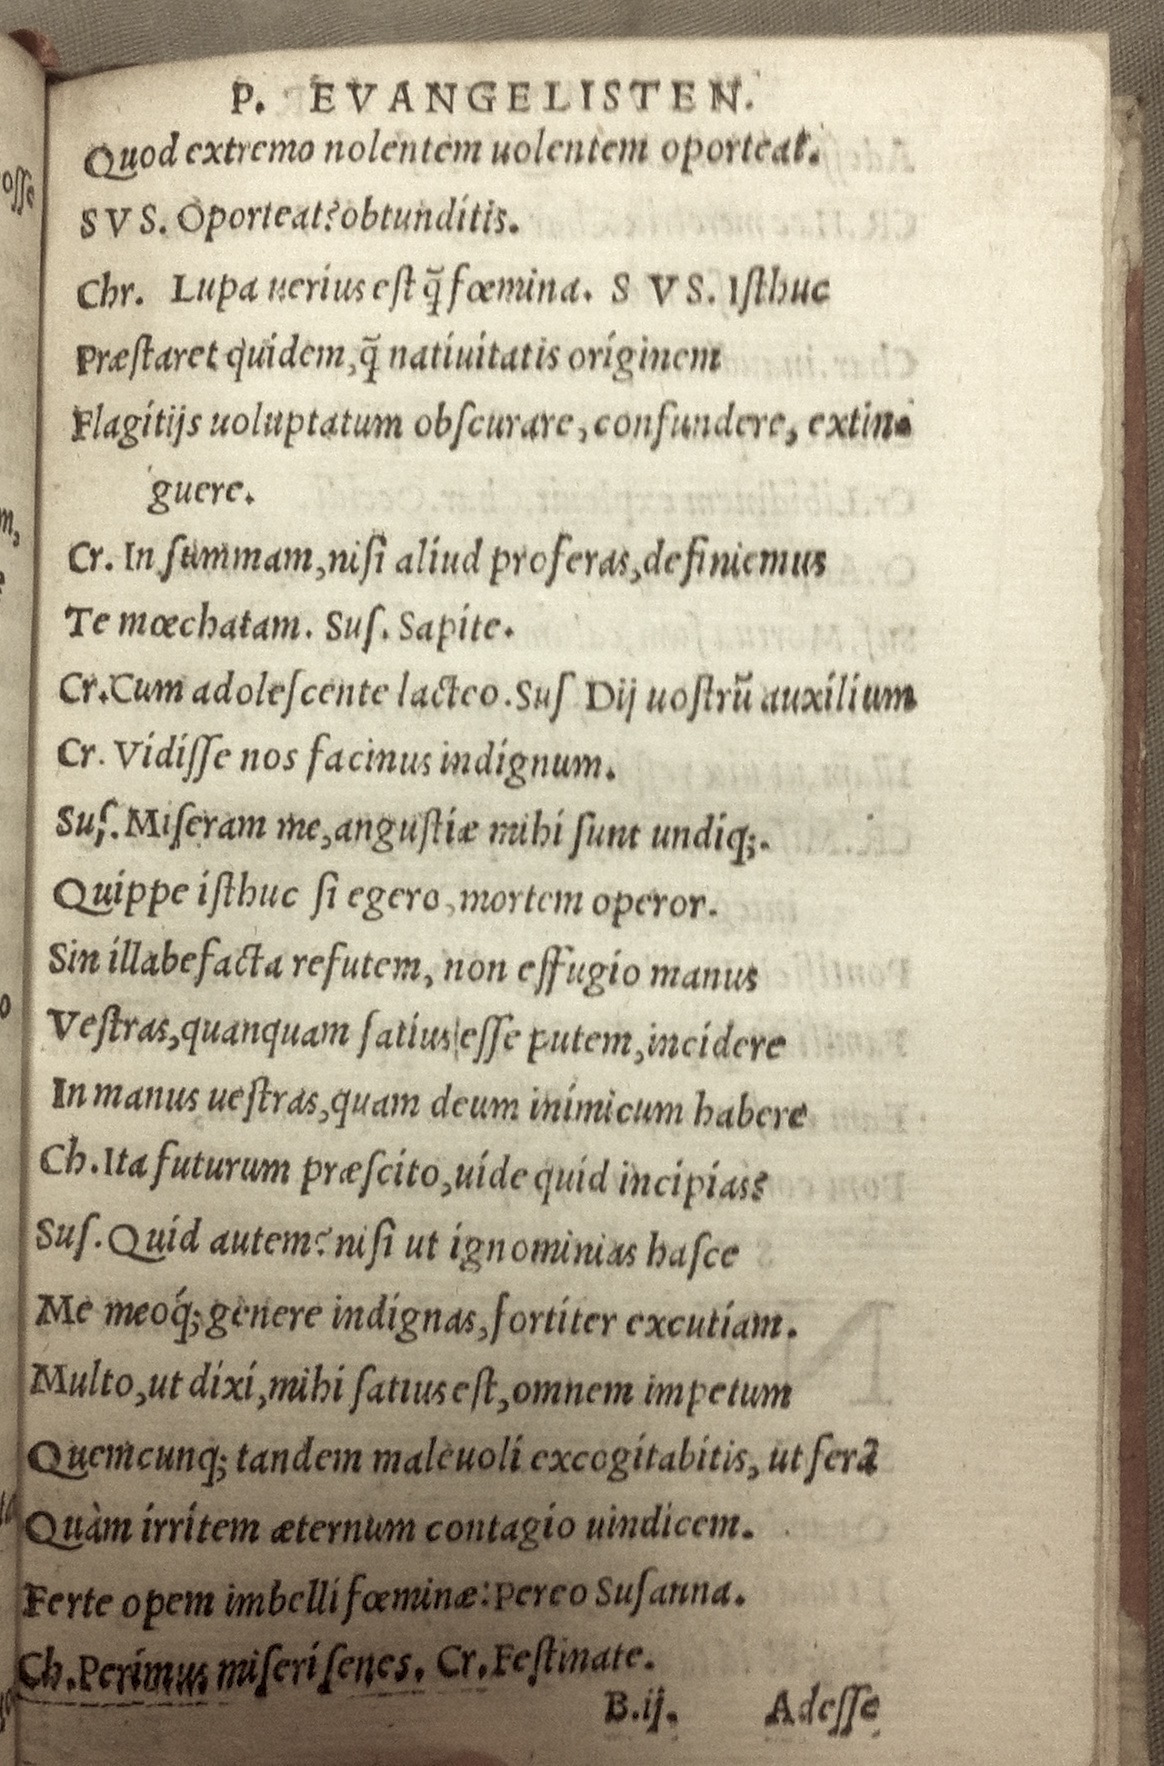 P. EVANGELISTEN.
Quod extremo nolentem uolentem oporteat.
SVS. Oporteat? obtunditis.
Chr. Lupa uerius eſt q̃ fœmina. SVS. Iſthuc
Præſtaret quidem, q̃ natiuitatis originem
Flagitijs uoluptatum obſcurare, confundere, extin-
guere.
Cr. In ſummam, niſi aliud proferas, definiemus
Te mœchatam. Suſ. Sapite.
Cr. Cum adoleſcente lacteo. Suſ Dij uoſtrũ auxilium
Cr. Vidiſſe nos facinus indignum.
Suſ. Miſeram me, anguſtiæ mihi ſunt undiq;.
Quippe iſthuc ſi egero, mortem operor.
Sin illabefacta refutem, non effugio manus
Veſtras, quanquam ſatius eſſe putem, incidere
In manus ueſtras, quam deum inimicum habere
Ch. Ita futurum præſcito, uide quid incipiass
Suſ. Quid autem? niſi ut ignominias haſce
Me meoq́; genere indignas, fortiter excutiam.
Multo, ut dixi, mihi ſatius eſt, omnem impetum
Quemcunq; tandem maleuoli excogitabitis, ut ferã
Quàm irritem æternum contagio uindicem.
Ferte opem imbelli fœminæ: pereo Suſanna.
Ch. Perimus miſeri ſenes. Cr. Feſtinate.
B.ij. Adeſſe
oſſe
m,